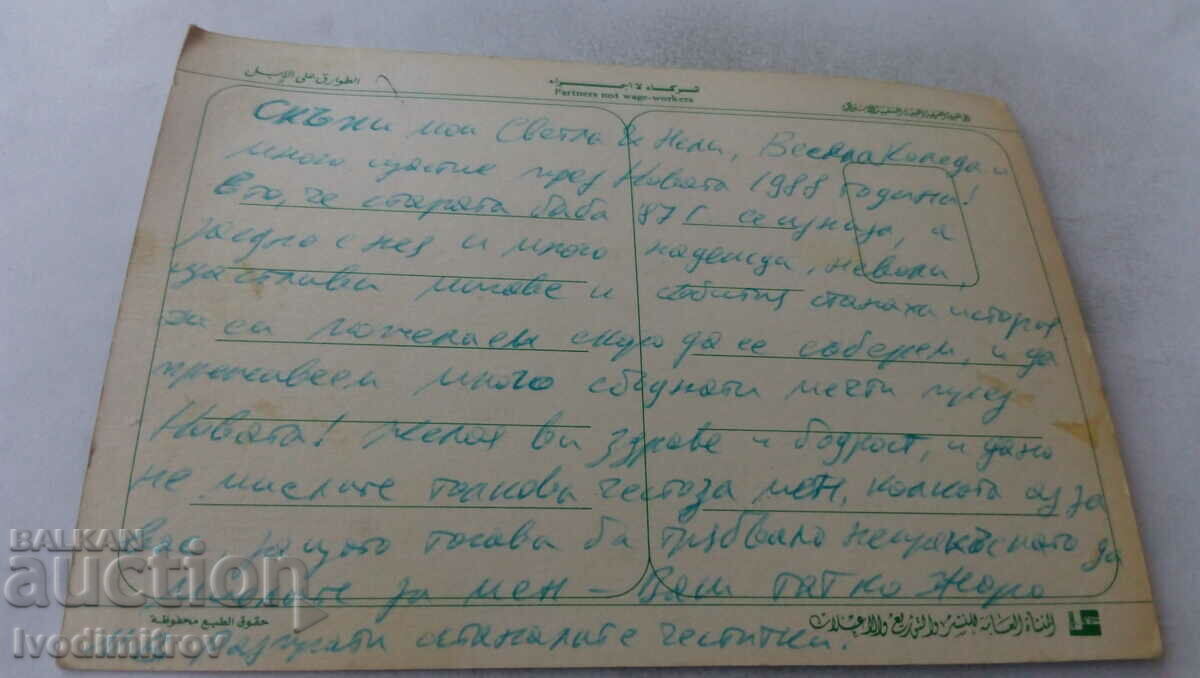 الطوارق على الإبل
شركاء لا أجراء
Partners not wage-workers
Скъпи мои Светла & Нели, Весела Коледа и
много щастие през Новата 1988 година!
Ето, че старата баба 87г си изниза, а
заедно с нея и много надежди, неволи,
щастливи мигове и събития станаха история
За си пожелаем скоро да се съберем, и да
преживеем много сбъднати мечти през
Новата! Желая ви здраве и бодрост, и дано
не мислите толкова често за мен, колкото аз за
вас защото тогава би трябвало непрекъснато да
мислите за мен – Ваш татко Жоро
разпрати останалите честитки.
حقوق الطبع محفوظة
المنشأة العامة للنشر والتوزيع والإعلان
BALKAN
auction
Ivodimitrov